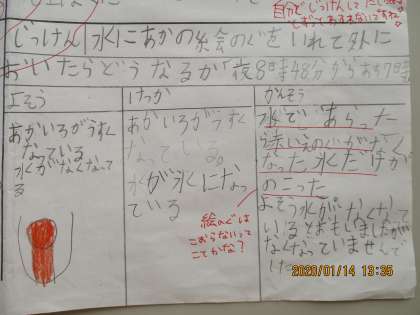 自分で
じっけん 水にあかの絵会のぐをいれて外に
おいたらどうなるか「夜8時48分からあさ7時
よそう
けっか
かんそう
あかいろがうすく
なっている
水がなくなって
る
あかいろがうすく
なっている。
水が氷になっ
ている
絵のぐは
こおらないって
ことかな?
水であらった
なった氷だけが
のこった
よそう水がなくなて
いるとおもいましたが
なくなっていませんで
2020/01/14 13:35